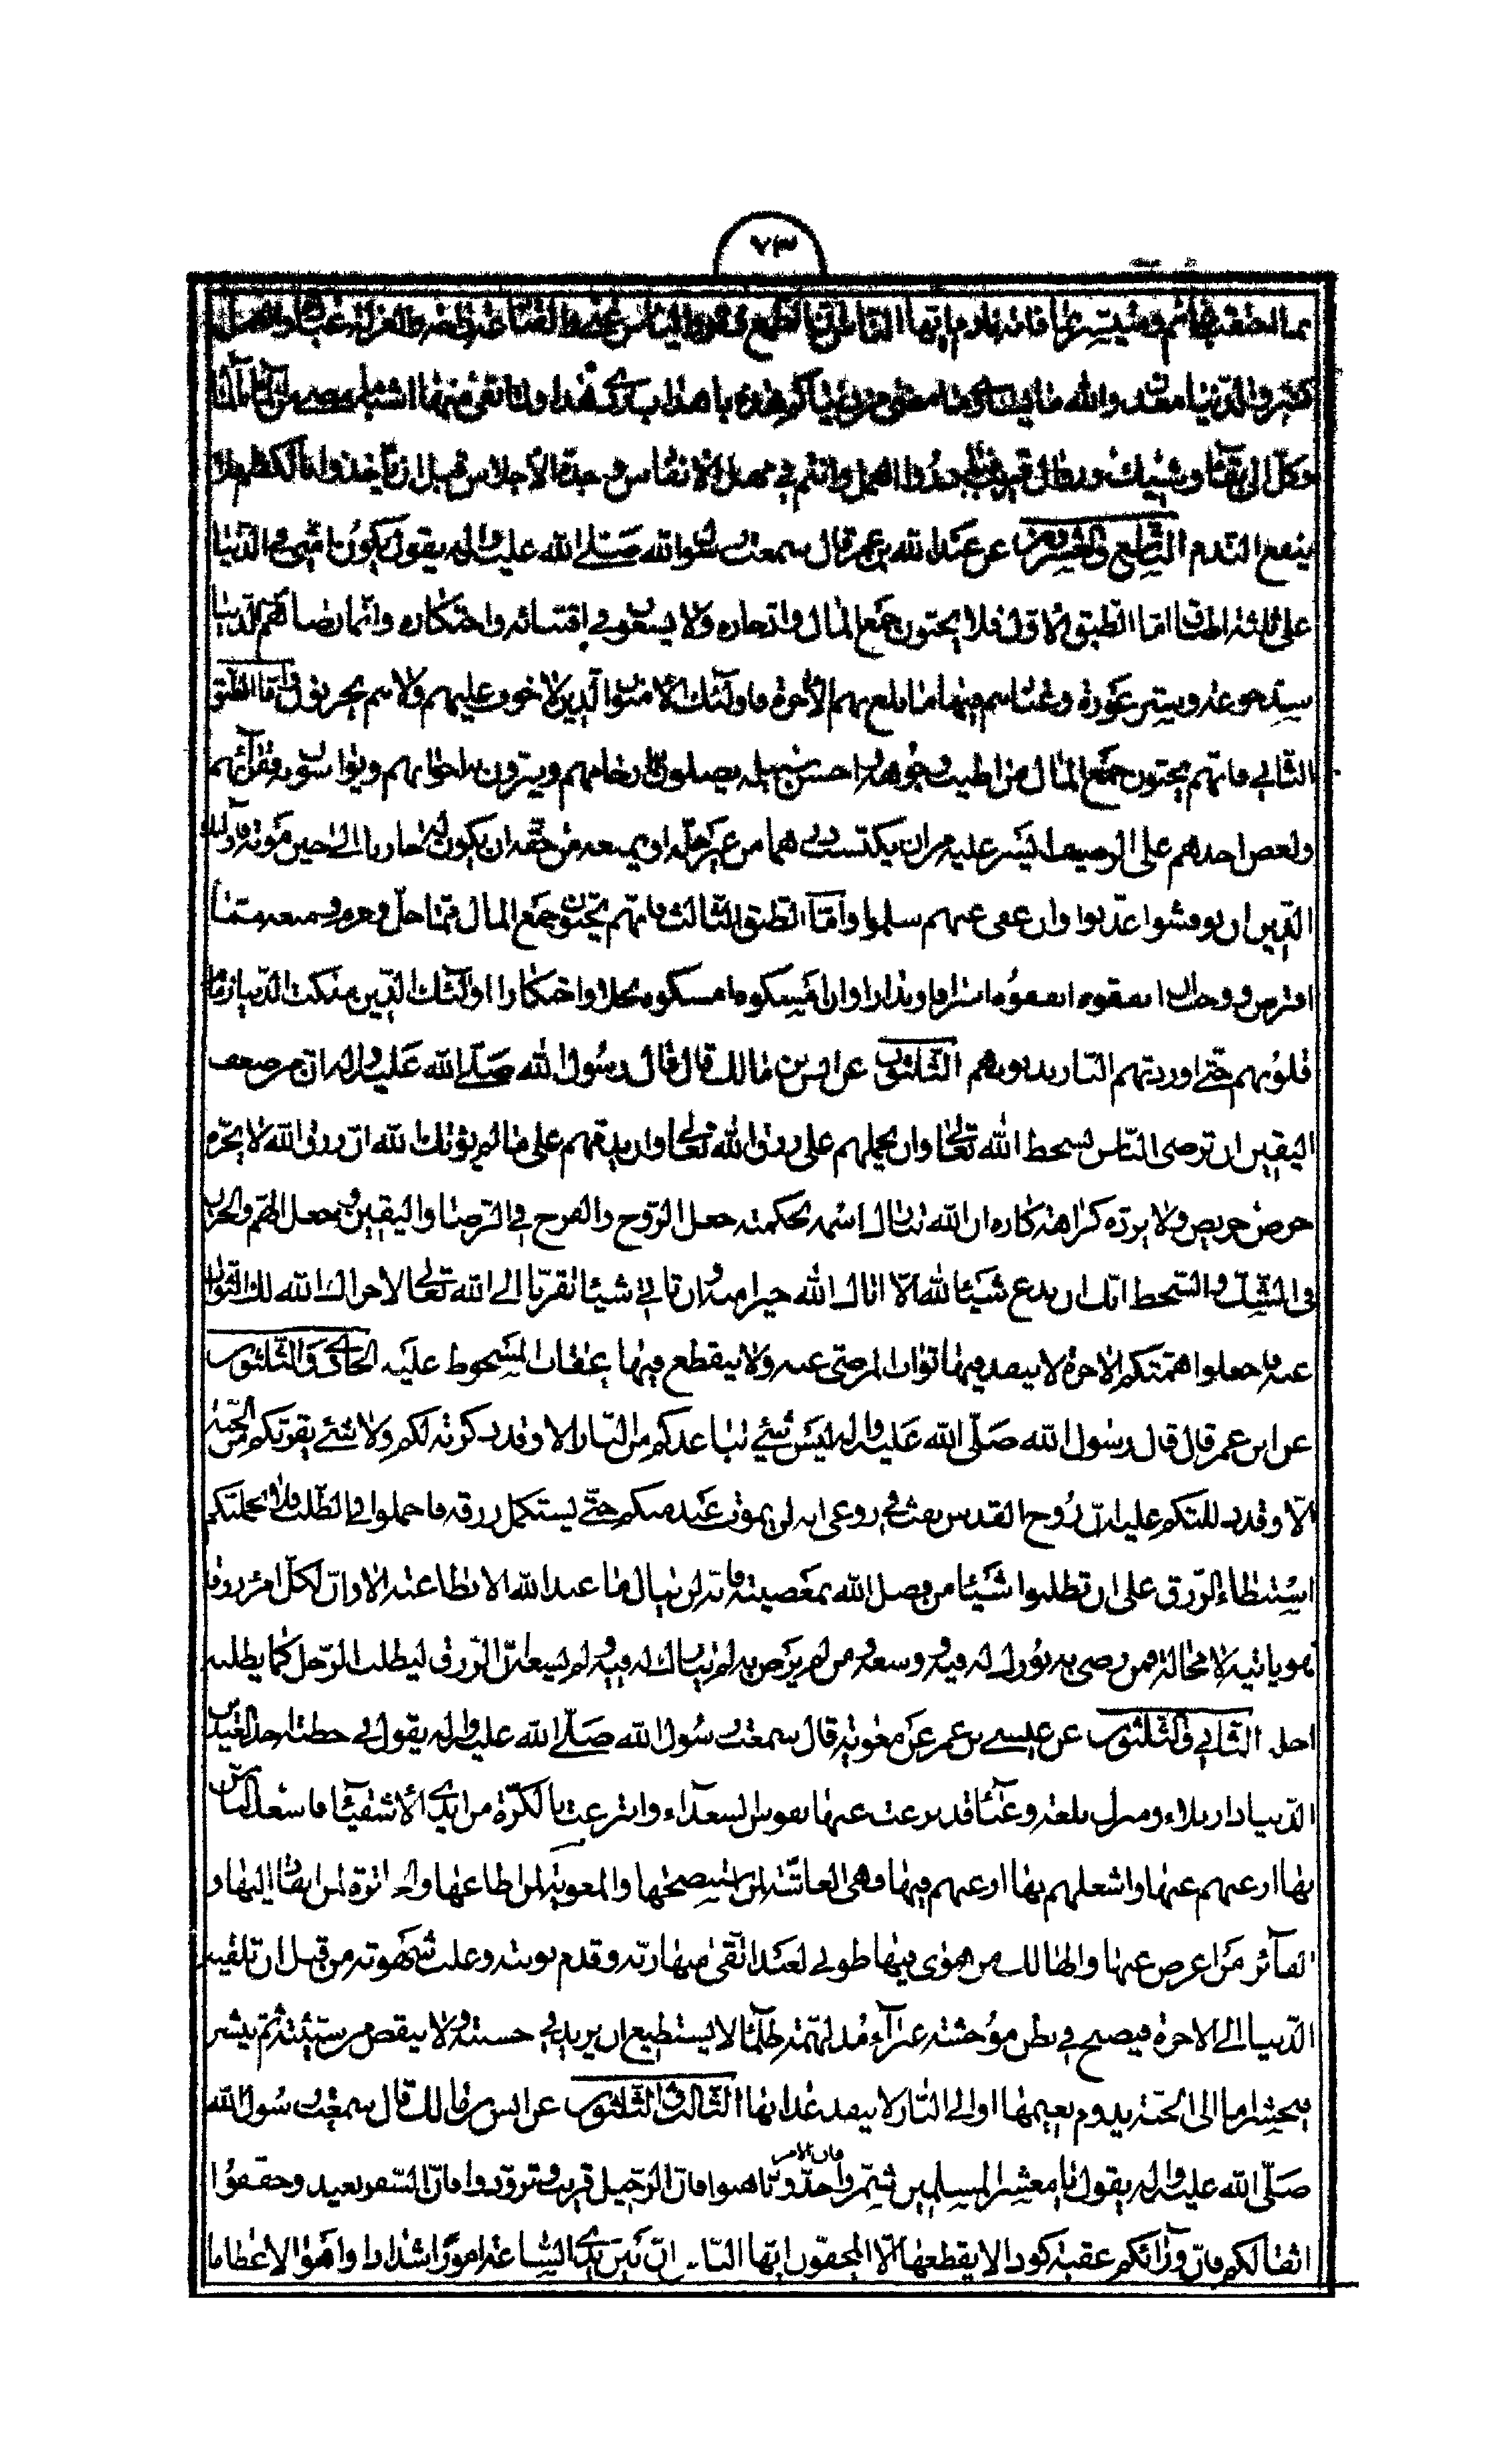 ٧٣
فانه نادم ايها الناس ان الطمع فقر واليأس غنى والقناعة راحة والعزلة عبادة والعمل
كنز والدنيا معدن والله ما يساوى ما مضى من دنياكم هذه باهداب بردى هذا ولما بقى منها اشبه بما مضى من الماء بالماء
وكل الى بقاء وشيك وزوال قريب فبادروا العمل وانتم في مهل الانفاس وجدة الاحلاس قبل ان تأخذوا بالكظم فلا
ينفع الندم التاسع والعشرون عن عبد الله بن عمر قال سمعت رسول الله صلى الله عليه واله يقول يكون امتى في الدنيا
على ثلثة اطباق اما الطبق الاول فلا يحبون جمع المال وادخاره ولا يسعون في اقتنائه واحتكاره وانما رضاهم من الدنيا
سد جوعة وستر عورة وغناهم فيها ما بلغ بهم الاخرة فاولئك الامنون الذين لا خوف عليهم ولا هم يحزنون واما الطبق
الثاني فانهم يحبون جمع المال من اطيب وجوهه واحسن سبله يصلون به ارحامهم ويبرون به اخوانهم ويواسون به فقرائهم
ولعض احدهم على الرصيف ايسر عليه من ان يكتسب درهما من غير حله او يمنعه من حقه ان يكون له خازنا الى حين موته فاولئك
الذين ان نوقشوا عذبوا وان عفى عنهم سلموا واما الطبق الثالث فانهم يحبون جمع المال مما حل وحرم ومنعه مما
افترض ووجب ان انفقوه انفقوه اسرافا وبذارا وان امسكوه امسكوه بخلا واحتكارا اولئك الذين ملكت الدنيا زمام
قلوبهم حتى اوردتهم النار بذنوبهم الثلثون عن انس بن مالك قال قال رسول الله صلى الله عليه واله ان من ضعف
اليقين ان ترضى الناس بسخط الله تعالى وان تحمدهم على رزق الله تعالى وان تذمهم على ما لم يؤتك الله ان رزق الله لا يجره
حرص حريص ولا يرده كراهة كاره ان الله تبارك اسمه بحكمته جعل الروح والفرح في الرضا واليقين وجعل الهم والحزن
في الشك والسخط انك ان تدع شيئا لله الا اتاك الله خيرا منه وان تاتى شيئا تقربا الى الله تعالى الا اجزل الله لك الثواب
عنه فاجعلوا همتكم الاخرة لا ينفد فيها ثواب المرضى عنه ولا ينقطع فيها عقاب المسخوط عليه الحادى والثلثون
عن ابن عمر قال قال رسول الله صلى الله عليه واله ليس شئ تباعدكم من النار الا وقد ذكرته لكم ولا شئ يقربكم من الجنة
الا وقد دللتكم عليه ان روح القدس نفث في روعى انه لن يموت عبد منكم حتى يستكمل رزقه فاجملوا في الطلب فلا يحملنكم
استبطاء الرزق على ان تطلبوا شيئا من فضل الله بمعصيته فانه لن ينال ما عند الله الا بطاعته الا وان لكل امرئ رزقا
هو ياتيه لا محالة فمن رضى به بورك له فيه ووسعه ومن لم يرض به لم يبارك له فيه ولم يسعه ان الرزق ليطلب الرجل كما يطلبه
اجله الثاني والثلثون عن عيسى بن عمر عن معوية قال سمعت رسول الله صلى الله عليه واله يقول في خطبة احد العيدين
الدنيا دار بلاء ومنزل بلغة وعناء قد نزعت عنها نفوس السعداء وانتزعت بالكره من ايدى الاشقياء فاسعد الناس
بها ارغبهم عنها واشغلهم بها ارغبهم فيها وهى الغاشة لمن استنصحها والمغوية لمن اطاعها والخاترة لمن انقاد اليها و
الفائز من اعرض عنها والهالك من هوى فيها طوبى لعبد اتقى فيها ربه وقدم توبته وغلب شهوته من قبل ان تلقيه
الدنيا الى الاخرة فيصبح في بطن موحشة غبراء مدلهمة ظلماء لا يستطيع ان يزيد في حسنة ولا ينقص من سيئة ثم ينشر
فيحشر اما الى الجنة يدوم نعيمها او الى النار لا ينفد عذابها الثالث والثلثون عن انس بن مالك قال سمعت رسول الله
صلى الله عليه واله يقول يا معشر المسلمين شمروا فان الامر جد وتاهبوا فان الرحيل قريب وتزودوا فان السفر بعيد وخففوا
اثقالكم فان ورائكم عقبة كؤدا لا يقطعها الا المخفون ايها الناس ان بين يدى الساعة امورا شدادا واهوالا عظاما